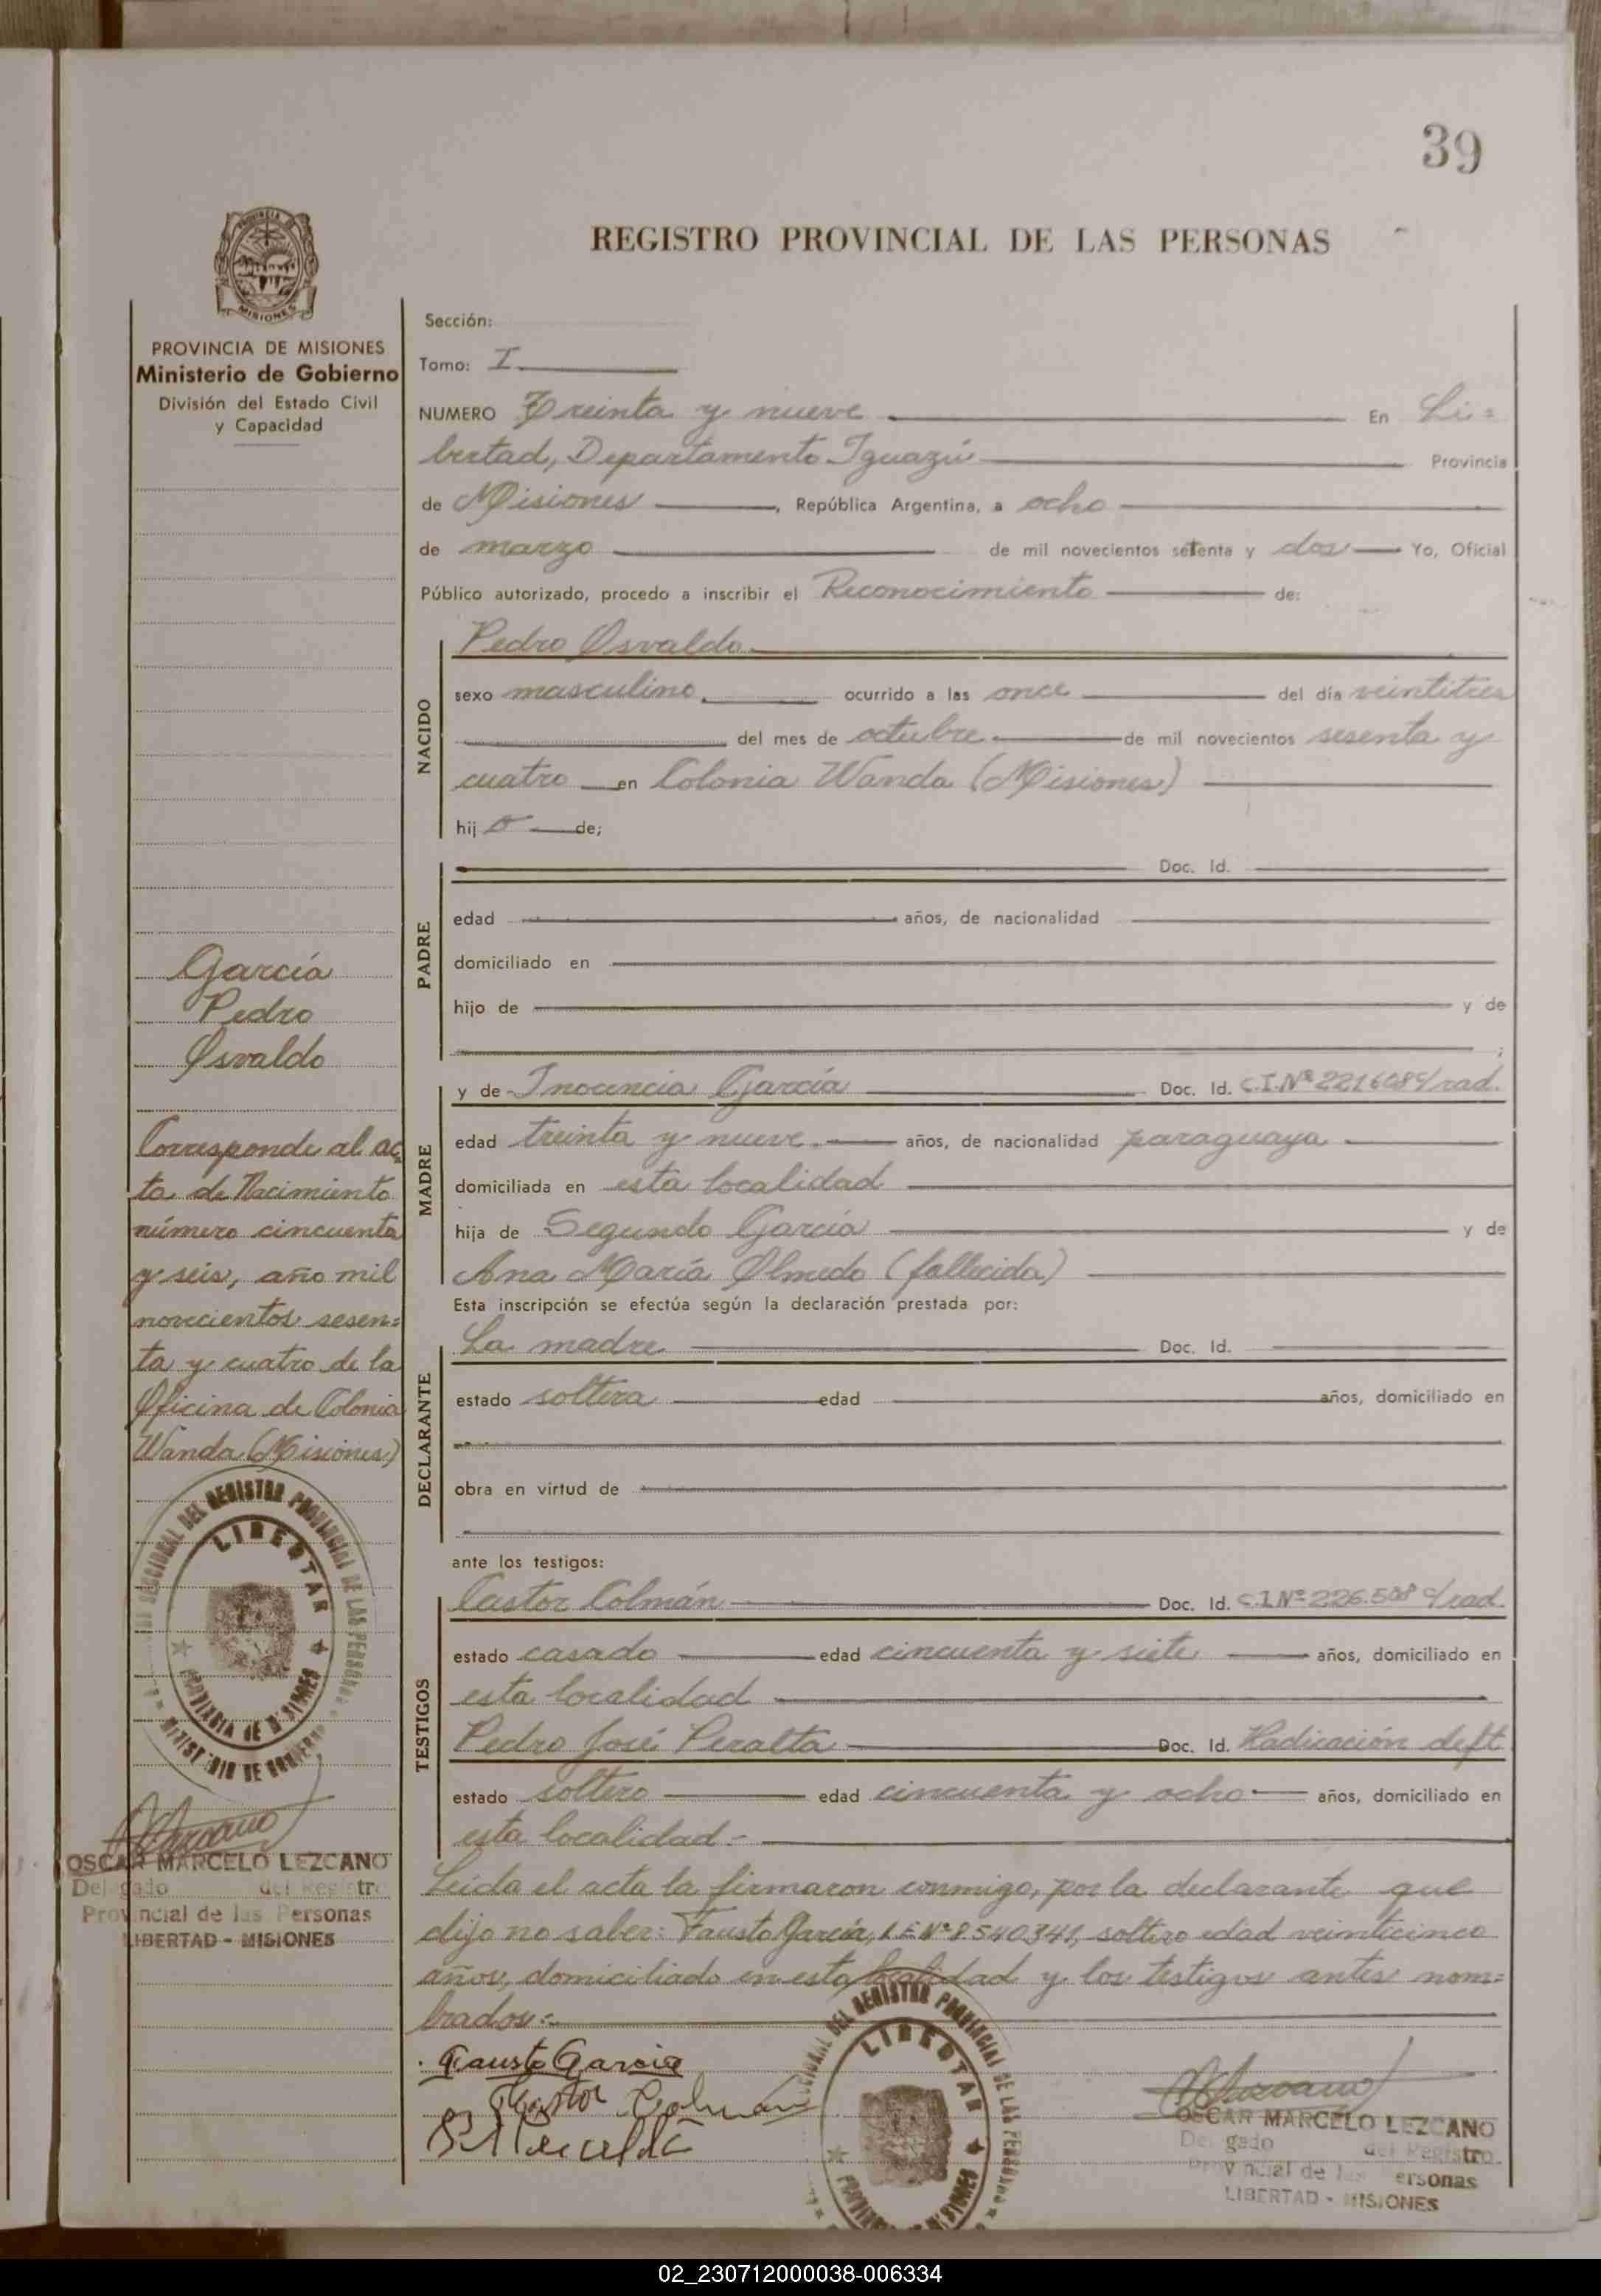 39
REGISTRO PROVINCIAL DE LAS PERSONAS
PROVINCIA DE MISIONES
Ministerio de Gobierno
División del Estado Civil
y Capacidad
García
Pedro
Osvaldo
Corresponde al ac
ta de Nacimiento
número cincuenta
y seis, año mil
novecientos sesen=
ta y cuatro de la
Oficina de Colonia
Wanda (Misiones)
LIBERTAD
OSCAR MARCELO LEZCANO
Delegado del Registro
Provincial de las Personas
LIBERTAD - MISIONES
Sección:
Tomo: I
NUMERO Treinta y nueve En Li=
bertad, Departamento Iguazú Provincia
de Misiones, República Argentina, a ocho
de marzo de mil novecientos setenta y dos Yo, Oficial
Público autorizado, procedo a inscribir el Reconocimiento de:
NACIDO
Pedro Osvaldo
sexo masculino. ocurrido a las once del día veintitres
del mes de octubre de mil novecientos sesenta y
cuatro en Colonia Wanda (Misiones)
hij o de;
PADRE
Doc. Id.
edad años, de nacionalidad
domiciliado en
hijo de y de
;
MADRE
y de Inocencia García Doc. Id. C.I.Nº 221608 c/rad.
edad treinta y nueve. años, de nacionalidad paraguaya
domiciliada en esta localidad
hija de Segundo García y de
Ana María Olmedo (fallecida)
Esta inscripción se efectúa según la declaración prestada por:
DECLARANTE
La madre Doc. Id.
estado soltera edad años, domiciliado en
obra en virtud de
ante los testigos:
TESTIGOS
Castor Colmán Doc. Id. C.I.Nº 226.508 c/rad.
estado casado edad cincuenta y siete años, domiciliado en
esta localidad
Pedro José Peralta Doc. Id. Radicación deft.
estado soltero edad cincuenta y ocho años, domiciliado en
esta localidad.-
Leída el acta la firmaron conmigo, por la declarante que
dijo no saber: Fausto García, L.E Nº 8540341, soltero edad veinticinco
años, domiciliado en esta localidad y los testigos antes nom=
brados.-
Fausto Garcia
Castor Colmán
LIBERTAD
OSCAR MARCELO LEZCANO
Delegado del Registro
Provincial de las Personas
LIBERTAD - MISIONES
02_230712000038-006334